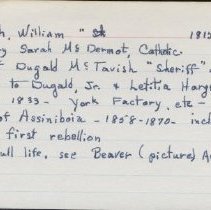 h, William " St 181
y Sarah McDermot, Catholic.
f Dugald McTavish "Sheriff"
to Dugald, Jr. & Letitia Harg
1833 - York Factory, etc -
of Assiniboia - 1858-1870- incl
first rebellion
ull life, see Beaver (picture) A